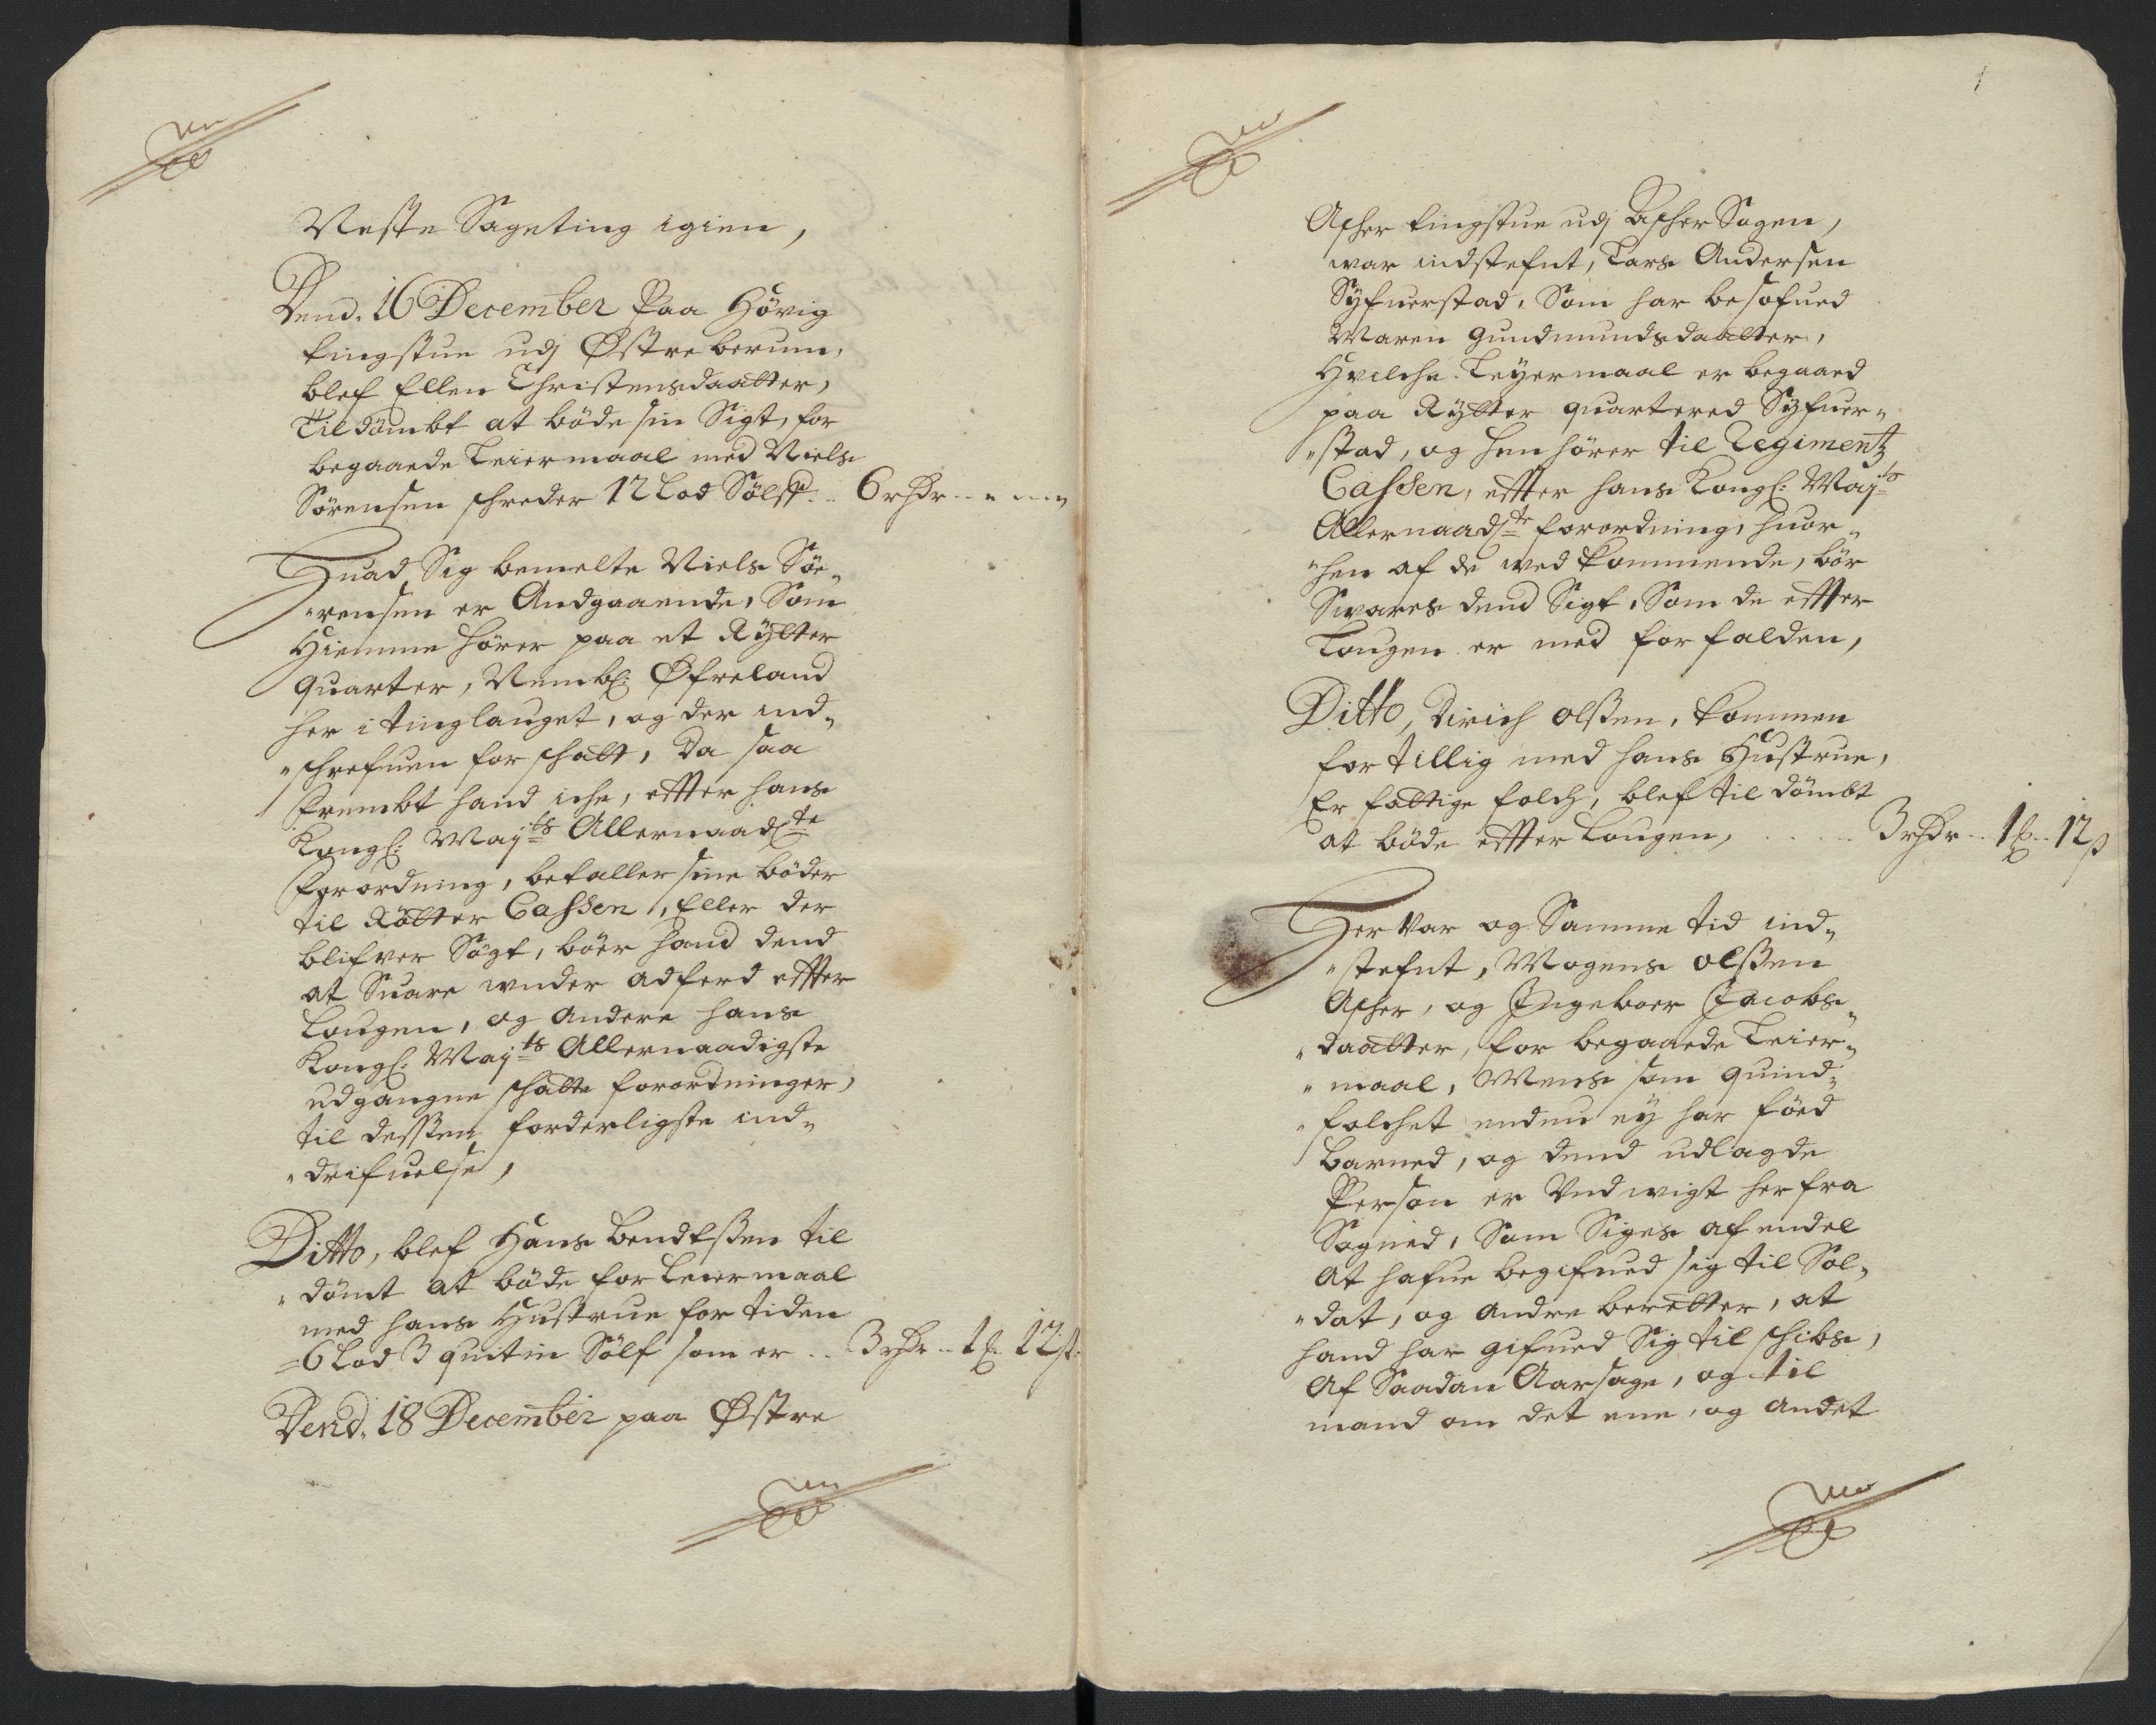 Neste Sageting igien,
Dend. 16 December Paa Hövig
tingstue udj Østre berum,
blef Ellen Christensdaatter,
Til dömbt at böde sin Sigt, for
begaaede Leiermaal med Niels
Sörensen schreder 12 Lod Sölf .. 6 rhdr - - -
Huad Sig bemelte Niels Söe-
rensen er Andgaaende, Som
Hiemme hörer paa et Rÿtter
quarter, Nembl: Øfreland
her i tinglauget, og der ind-
schrefuen for schatt, Da saa
frembt hand iche, effter hans
Kongl: Mayts Allernaadste
Forordning, betaller sine böder
til Rötter Cassen, Eller der
blifver Sögt, böer hand dend
at Suare under adferd effter
Lougen, og andere hans
Kongl: Mayts Allernaadigste
udgangne schatte forordninger,
til dessen forderligste ind-
drifuelse,
Ditto, blef Hans Bendtssen til
dömt at böde for leiermaal
med hans Hustrue for tiden
6 Lod 3 quitin Sölf som er .. 3 rhdr .. 1 ƶ 12 ß
Dend. 18 December paa Østre
Ascher tingstue udj Ascher Sogen,
war indstefnt, Lars Andersen
Syfuerstad, Som har besofued
Maren Gundmundsdaatter,
Hvilche Leyermaal er begaaed
paa Rÿtter quartered Syfuer-
stad, og hen hörer til Regimentz
Cassen, effter hans Kongl: Mayts
Allernaadste forordning, huor-
hen af de wed kommende, bör
Swares dend Sigt, Som de effter
Lougen er med forfalden,
Ditto, Dirich olssen, kommen
for tillig med hans Hustrue,
Er fattige folch, blef til dömbt
at böde effter Lougen, .. 3 rhdr .. 1 ƶ .. 12 ß
Her Var og Samme tid ind-
stefnt, Mogens olssen
Ascher, og Ingeboer Jacobs-
daatter, for begaaede Leier-
maal, Mens som quind-
folchet endnu eÿ har föed
barned, og dend udlagde
Person er Und wigt her fra
Sogned, Som Siges af endel
At hafue begifued sig til Sol-
dat, og andre beretter, at
hand har gifued Sig til schibs,
Af Saadan Aarsage, og til
mand om det ene, og andet